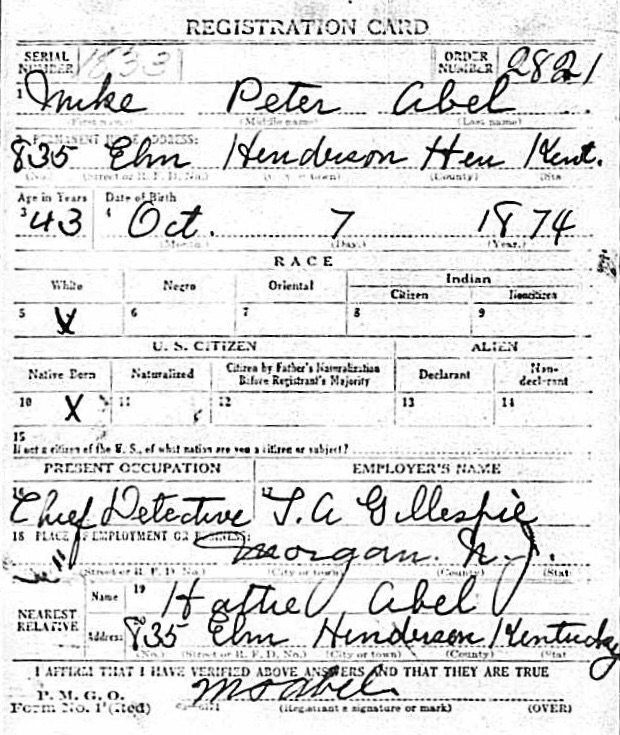 REGISTRATION CARD
SERIAL NUMBER 1833 ORDER NUMBER 2821
1 Mike Peter Abel
(First name) (Middle name) (Last name)
PERMANENT HOME ADDRESS:
835 Elm Henderson Hen Kent.
(No.) (Street or R. F. D. No.) (City or town) (County) (State)
Age in Years Date of Birth
3 43 4 Oct. 7 1874
(Month.) (Day.) (Year.)
RACE
White Negro Oriental Indian
Citizen Noncitizen
5 X 6 7 8 9
U. S. CITIZEN ALIEN
Native Born Naturalized Citizen by Father's Naturalization Before Registrant's Majority Declarant Non-declarant
10 X 11 12 13 14
15
If not a citizen of the U. S., of what nation are you a citizen or subject?
PRESENT OCCUPATION EMPLOYER'S NAME
16 Chief Detective 17 T. A Gillespie
18 PLACE OF EMPLOYMENT OR BUSINESS:
Morgan. N. J
(Street or R. F. D. No.) (City or town) (County) (State)
NEAREST RELATIVE
Name 19 Hattie Abel
Address 20 835 Elm Henderson Kentucky
(No.) (Street or R. F. D. No.) (City or town) (County) (State)
I AFFIRM THAT I HAVE VERIFIED ABOVE ANSWERS AND THAT THEY ARE TRUE
P. M. G. O.
Form No. 1 (Red) (Registrant's signature or mark) (OVER)